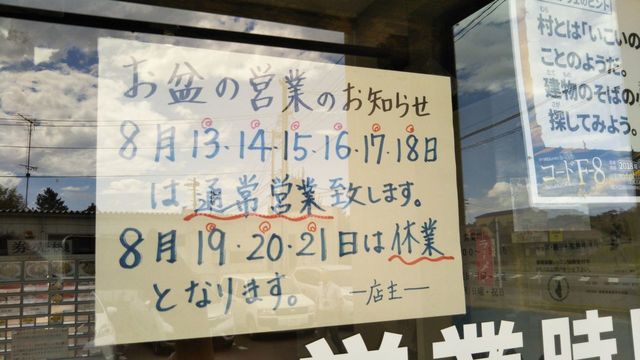 お盆の営業のお知らせ
8月13・14・15・16・17・18日
は通常営業致します。
8月19・20・21日は休業
となります。 ―店主―
村とは「いこいの
ことのようだ。
建物のそばの
探してみよう。
コードF-8
営業時